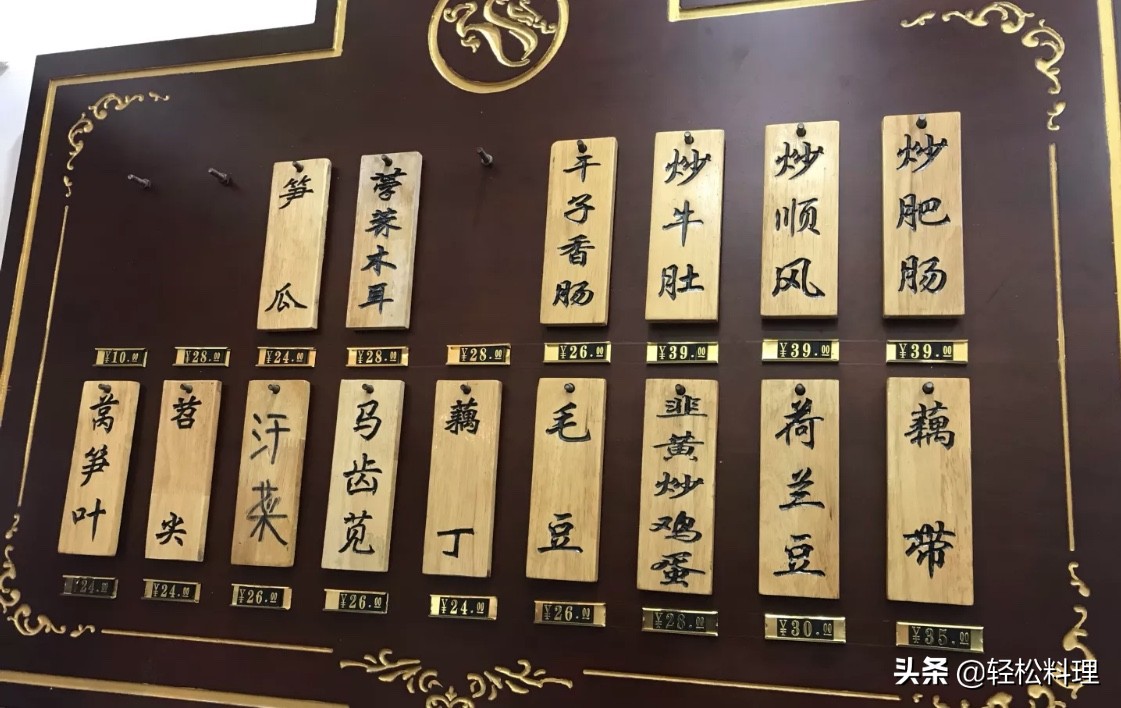 笋瓜
荸荠木耳
干子香肠
炒牛肚
炒顺风
炒肥肠
¥10.00
¥28.00
¥24.00
¥28.00
¥28.00
¥26.00
¥39.00
¥39.00
¥39.00
莴笋叶
苕尖
汗菜
马齿苋
藕丁
毛豆
韭黄炒鸡蛋
荷兰豆
藕带
¥24.00
¥24.00
¥26.00
¥26.00
¥24.00
¥26.00
¥28.00
¥30.00
¥35.00
头条 @轻松料理